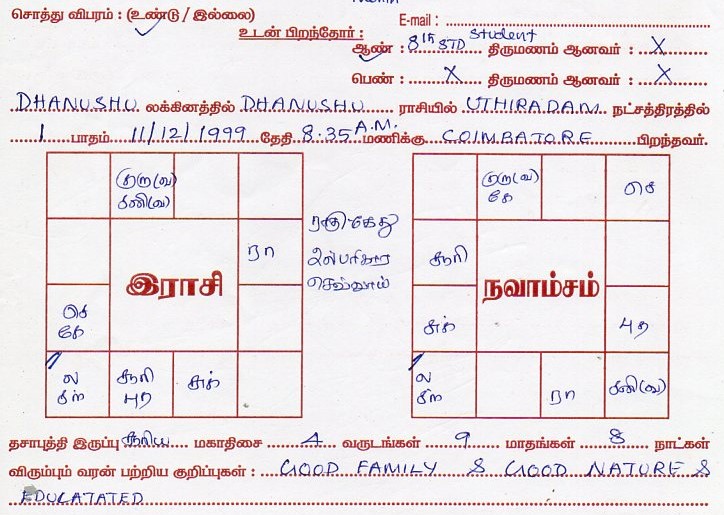 சொத்து விபரம் : (உண்டு / இல்லை)
E-mail :
உடன் பிறந்தோர் :
ஆண் : 8th STD student திருமணம் ஆனவர் : X
பெண் : X திருமணம் ஆனவர் : X
DHANUSHU லக்கினத்தில் DHANUSHU ராசியில் UTHIRADAM நட்சத்திரத்தில்
1 பாதம் 11/12/1999 தேதி 8:35 A.M. மணிக்கு COIMBATORE பிறந்தவர்.
குரு(வ)
சனி(வ)
ரா
இராசி
செ
கே
ல
சந்
சூரி
புத
சுக்
ராகு கேது
செவ்வாய்
குரு(வ)
கே
செ
சூரி
நவாம்சம்
சுக்
புத
ல
சந்
ரா
சனி(வ)
தசாபுத்தி இருப்பு சூரிய மகாதிசை 4 வருடங்கள் 9 மாதங்கள் 8 நாட்கள்
விரும்பும் வரன் பற்றிய குறிப்புகள் : GOOD FAMILY & GOOD NATURE &
EDUCATATED